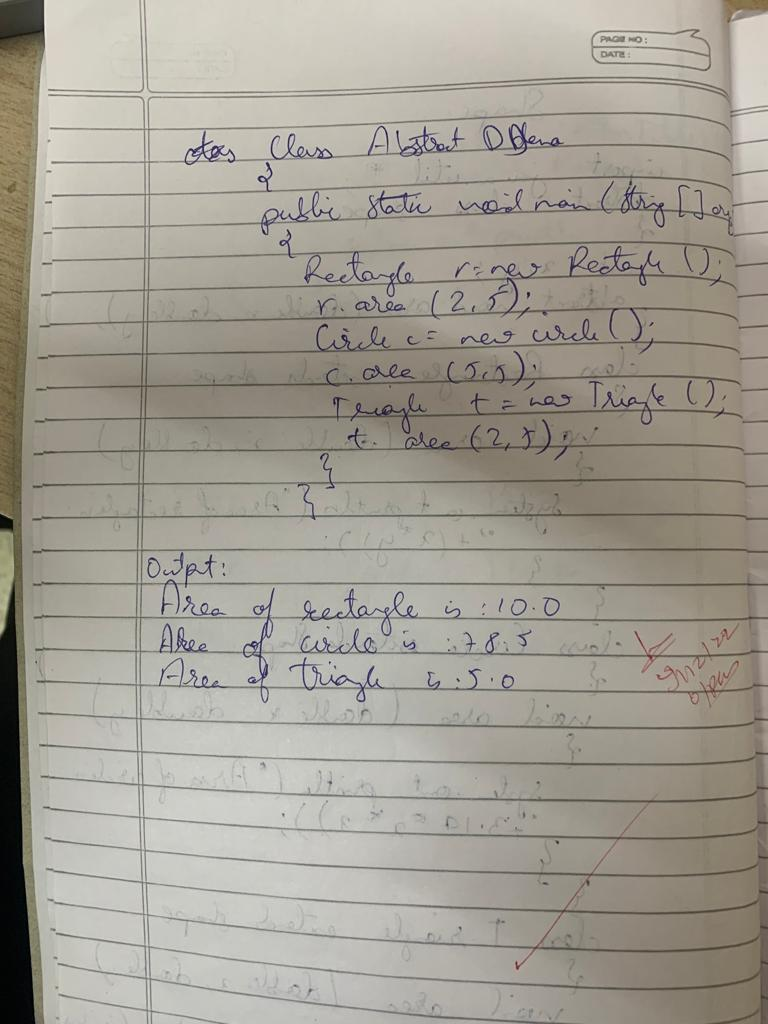 PAGE NO:
DATE:
Class Abstrat
{
public static void main (string []
{
Rectangle r=new Rectagle ();
r.area (2,5);
Circle c= new circle ();
c.area (5,5);
Triagle t = new Triagle ();
t. area (2,5);
}
}
Output:
Area of rectangle is :10.0
Area of circle is :78.5
Area of triagle is :5.0